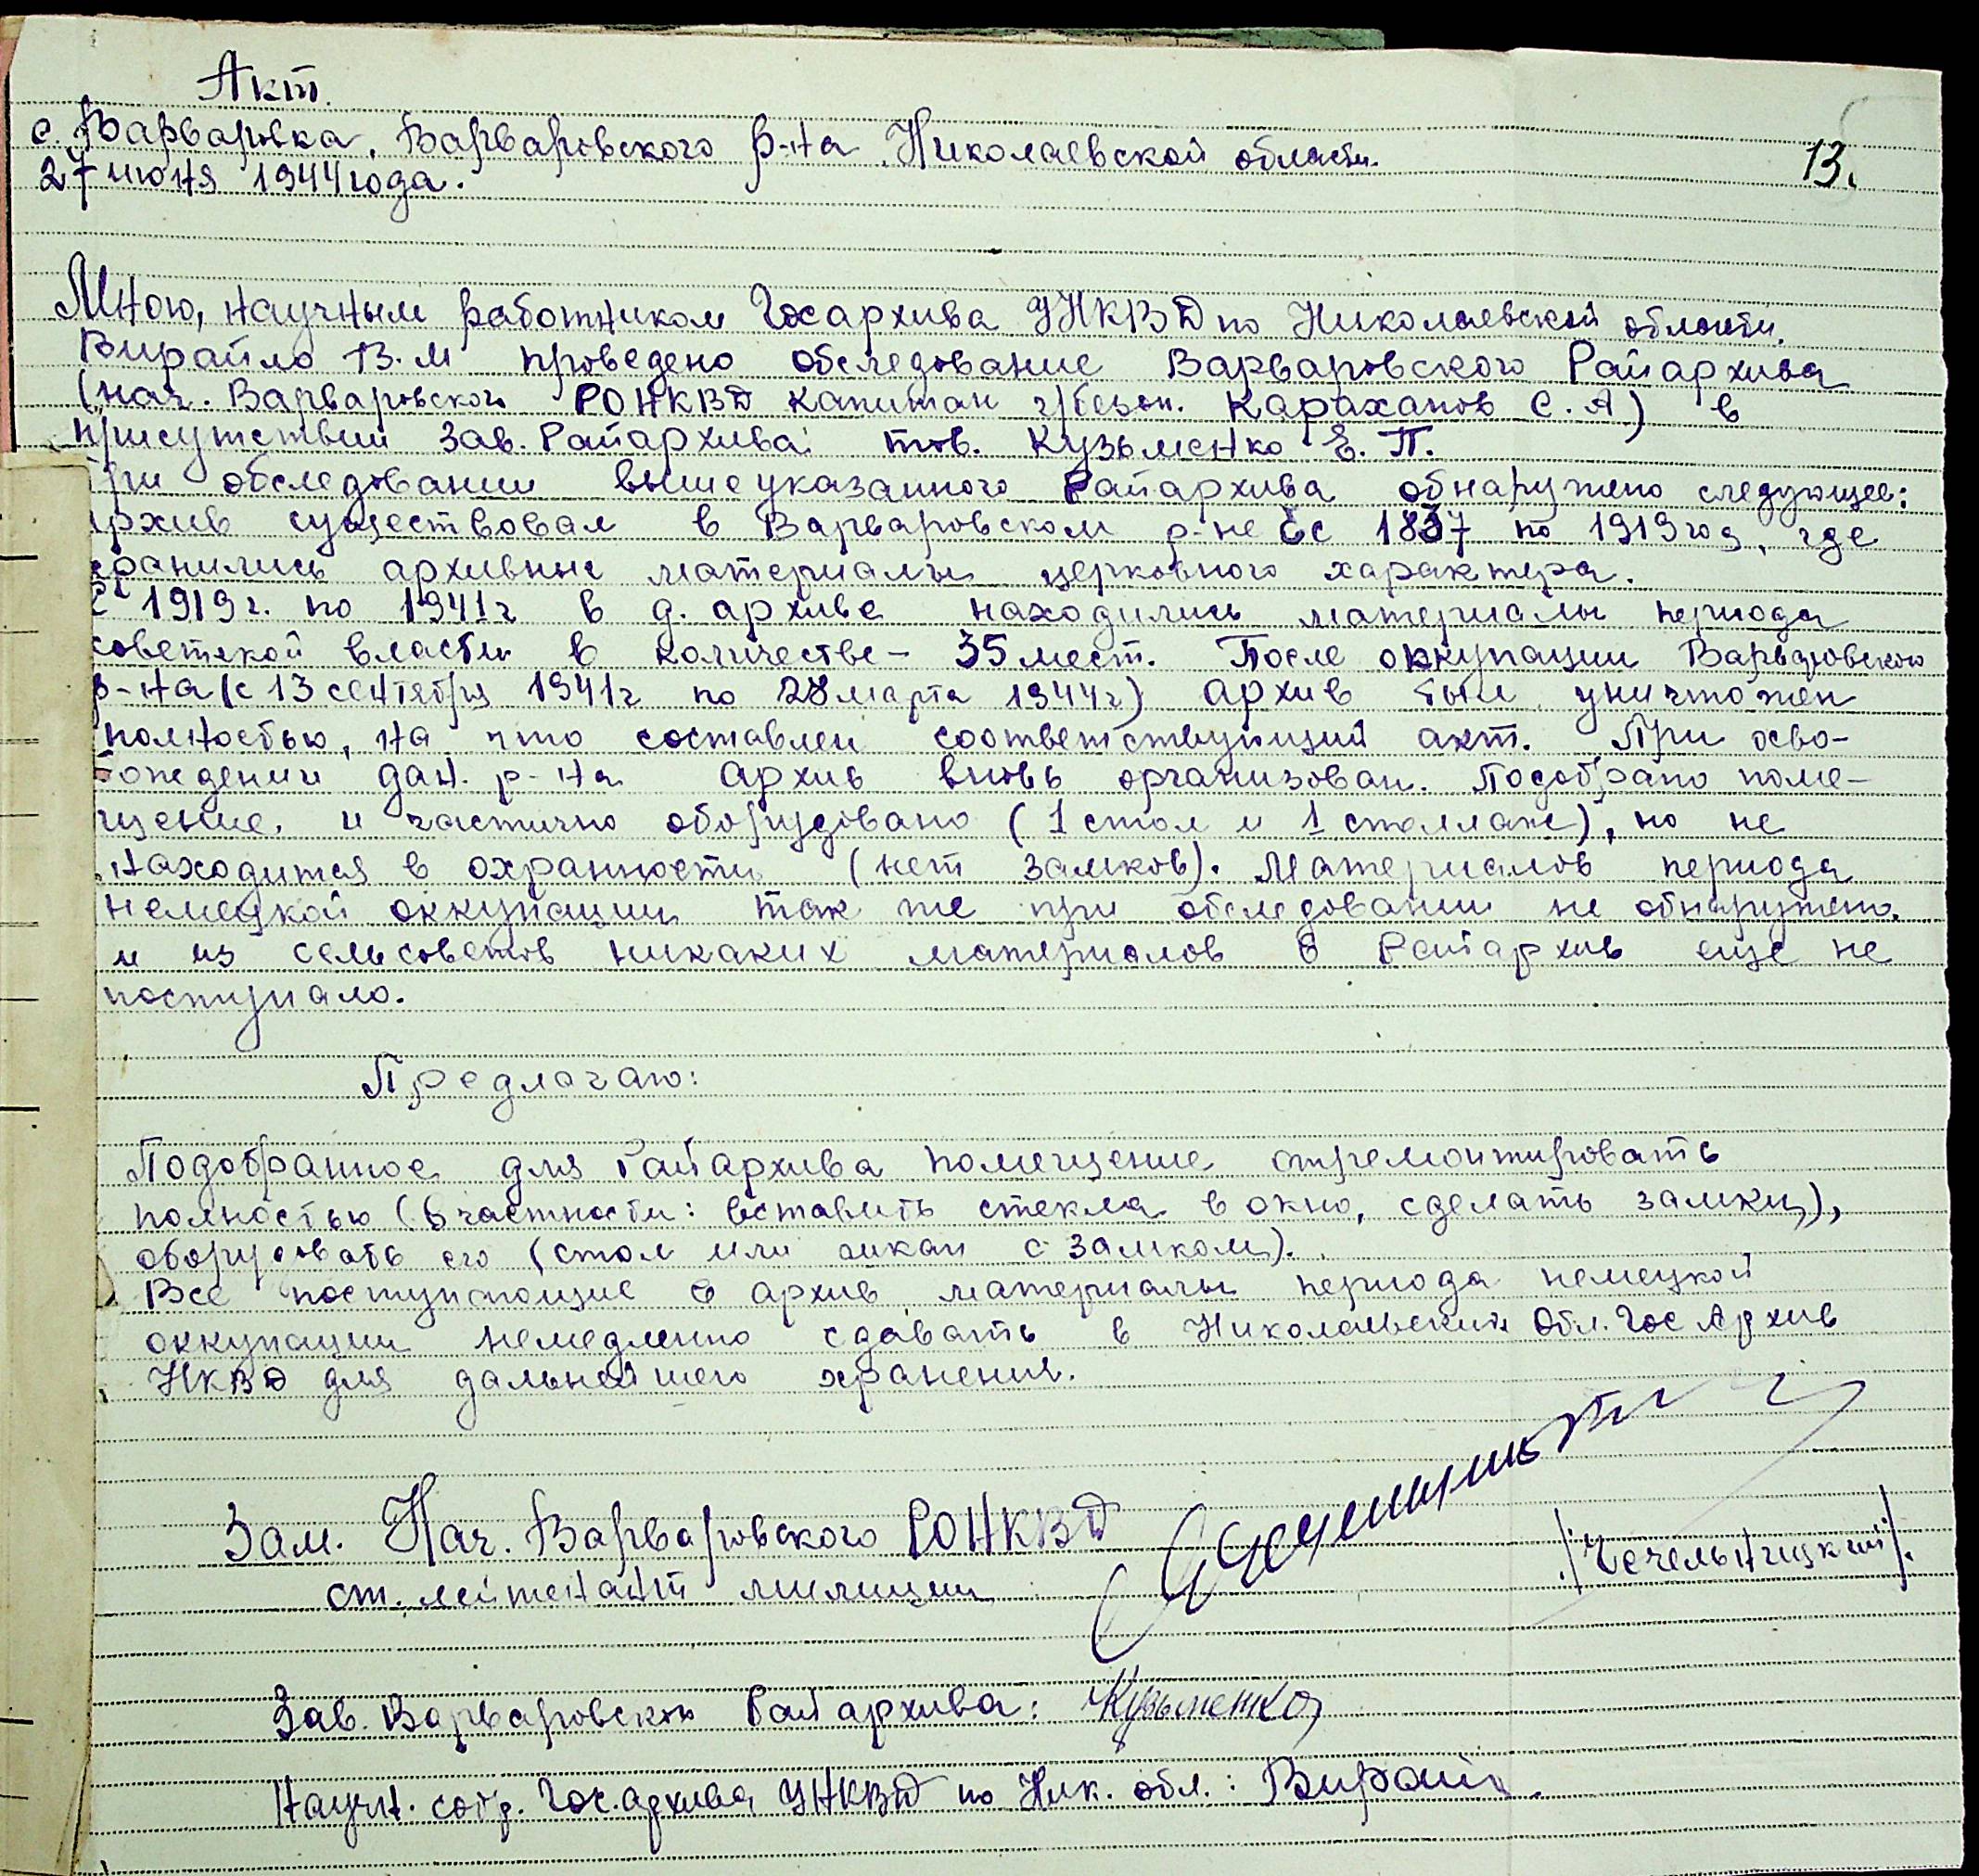 Акт.
с. Варваровка, Варваровского р-на Николаевской области.
13.
27 июня 1944 года.
Мною, научным работником Госархива УНКВД по Николаевской области.
Вирайло В.М проведено обследование Варваровского Райархива
(нач. Варваровского РОНКВД капитан г/безоп. Караханов С.А) в
присутствии Зав. Райархива: тов. Кузьменко Е.П.
При обследовании вышеуказанного Райархива обнаружено следующее:
архив существовал в Варваровском р-не с 1837 по 1919 год, где
хранились архивные материалы церковного характера.
С 1919 г. по 1941 г в д. архиве находились материалы периода
советской власти в количестве - 35 мест. После оккупации Варваровского
р-на (с 13 сентября 1941 г по 28 марта 1944 г) архив был уничтожен
полностью, на что составлен соответствующий акт. При осво-
бождении дан. р-на архив вновь организован. Подобрано поме-
щение. и частично оборудовано (1 стол и 1 стеллаж), но не
находится в охранности (нет замков). Материалов периода
немецкой оккупации так же при обследовании не обнаружено.
и из сельсоветов никаких материалов в Райархив еще не
поступало.
Предлагаю:
Подобранное для Райархива помещение отремонтировать
полностью (в частности: вставить стекла в окно, сделать замки),
оборудовать его (стол или шкап с замком).
Все поступающие в архив материалы периода немецкой
оккупации немедленно сдавать в Николаевский Обл. Гос Архив
НКВД для дальнейшего хранения.
Зам. Нач. Варваровского РОНКВД
/Чечельницкий/.
ст. лейтенант милиции
Зав. Варваровского Райархива: Кузьменко
Научн. сотр. Гос. архива УНКВД по Ник. обл.: Вирайло